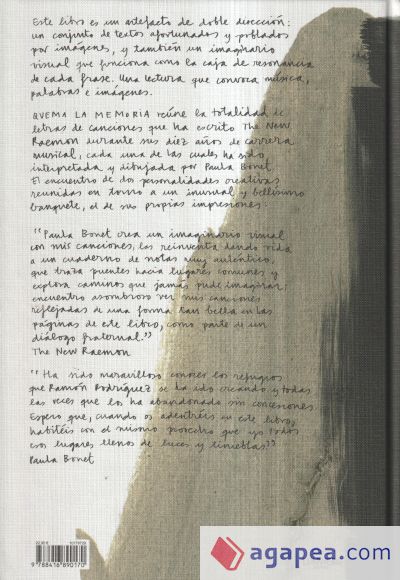 Este libro es un artefacto de doble dirección:
un conjunto de textos afortunados y poblados
por imágenes, y también un imaginario
visual que funciona como la caja de resonancia
de cada frase. Una lectura que convoca música,
palabras e imágenes.
QUEMA LA MEMORIA reúne la totalidad de
letras de canciones que ha escrito The New
Raemon durante sus diez años de carrera
musical, cada una de las cuales ha sido
interpretada y dibujada por Paula Bonet.
El encuentro de dos personalidades creativas
reunidas en torno a un inusual y bellísimo
banquete, el de sus propias impresiones.
"Paula Bonet crea un imaginario visual
con mis canciones, las reinventa dando vida
a un cuaderno de notas muy auténtico,
que traza puentes hacia lugares comunes y
explora caminos que jamás pude imaginar;
encuentro asombroso ver mis canciones
reflejadas de una forma tan bella en las
páginas de este libro, como parte de un
diálogo fraternal."
The New Raemon
"Ha sido maravilloso conocer los refugios
que Ramón Rodríguez se ha ido creando y todas
las veces que los ha abandonado sin concesiones.
Espero que, cuando os adentréis en este libro,
habitéis con el mismo provecho que yo todos
esos lugares llenos de luces y tinieblas"
Paula Bonet
22,90 € 10179720
9 788416 890170
agapea.com